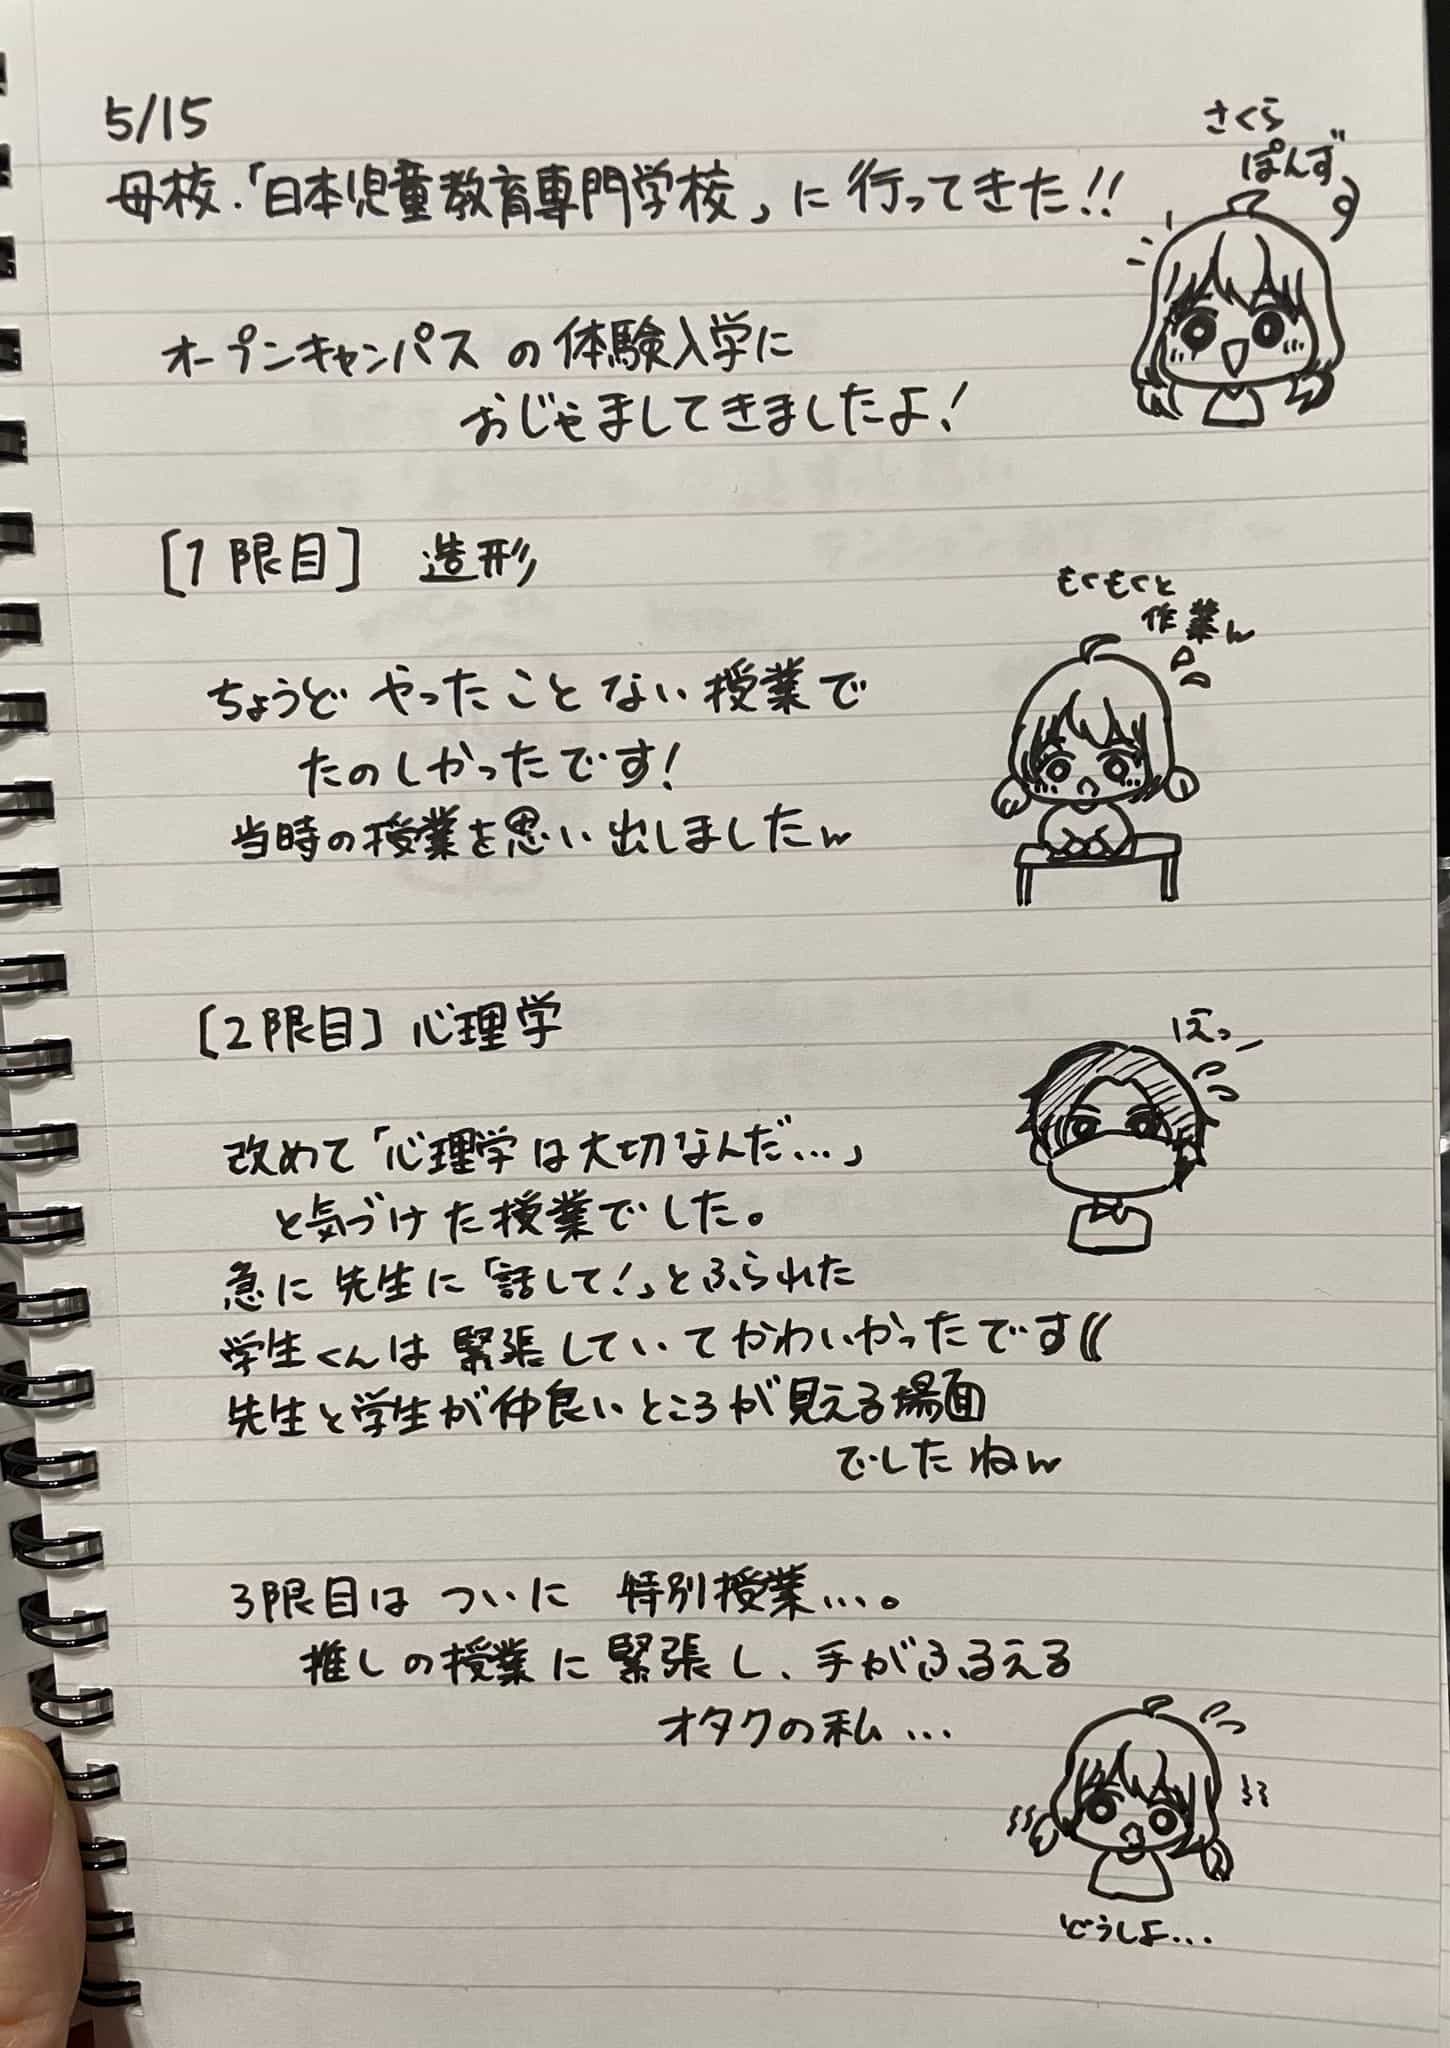 5/15
母校・「日本児童教育専門学校」に行ってきた!!
さくら
ぽんず
オープンキャンパスの体験入学に
おじゃましてきましたよ!
[1限目] 造形
もくもくと
作業w
ちょうどやったことない授業で
たのしかったです!
当時の授業を思い出しましたw
[2限目] 心理学
えっ
改めて「心理学は大切なんだ…」
と気づけた授業でした。
急に先生に「話して!」とふられた
学生くんは緊張していてかわいかったです((
先生と学生が仲良いところが見える場面
でしたねw
3限目はついに特別授業…。
推しの授業に緊張し、手がふるえる
オタクの私…
どうしよ…